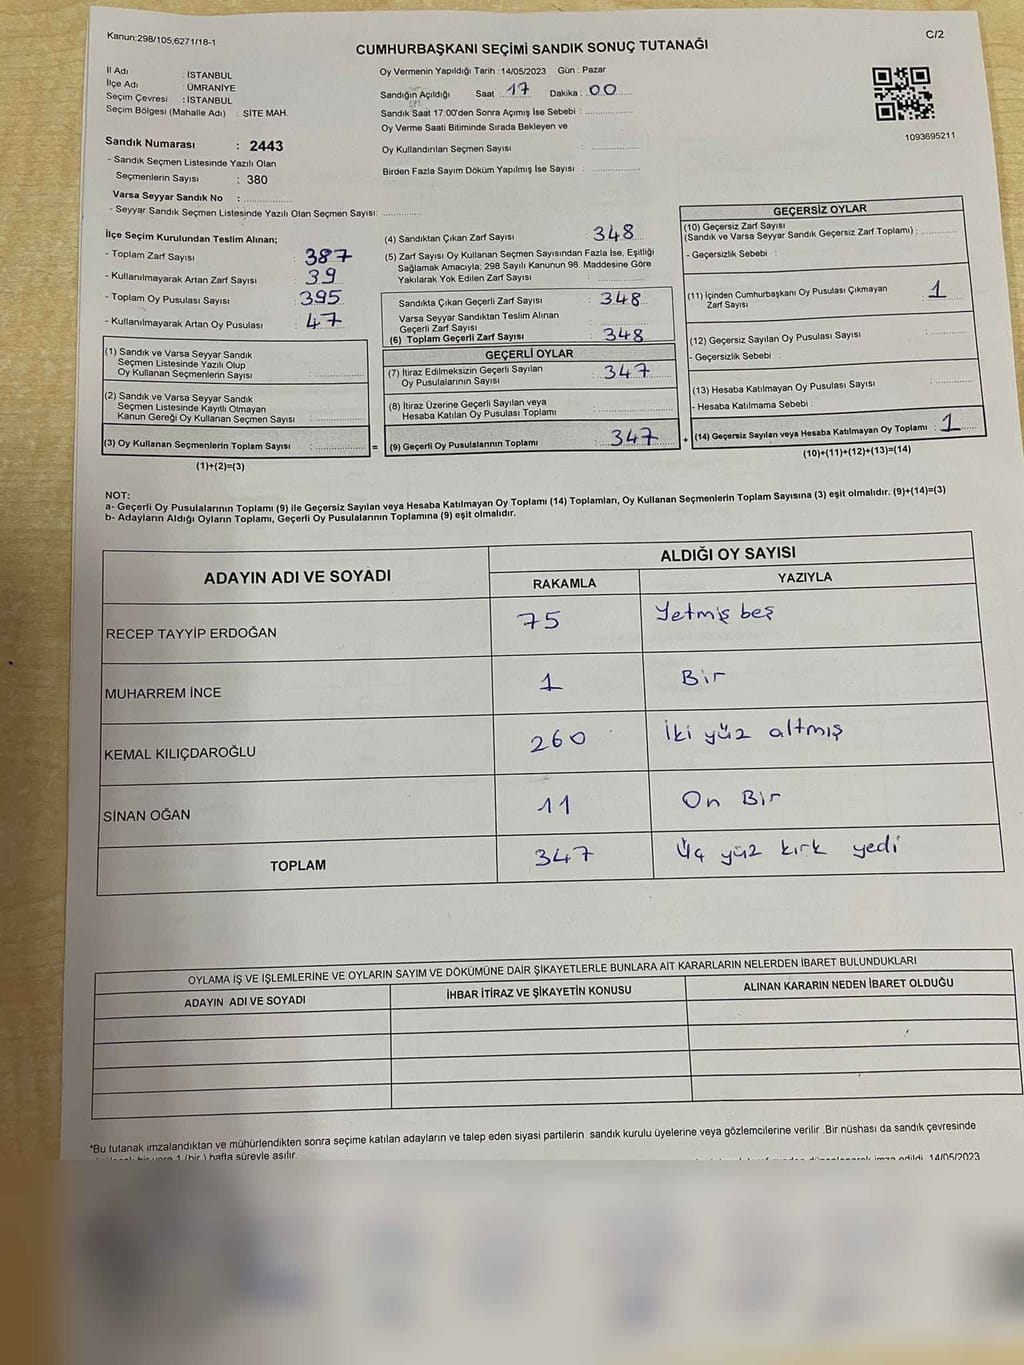 Kanun;298/105;6271/18-1
C/2
CUMHURBAŞKANI SEÇİMİ SANDIK SONUÇ TUTANAĞI
İl Adı : İSTANBUL
İlçe Adı : ÜMRANİYE
Seçim Çevresi : İSTANBUL
Seçim Bölgesi (Mahalle Adı) : SİTE MAH.
Sandık Numarası : 2443
- Sandık Seçmen Listesinde Yazılı Olan
Seçmenlerin Sayısı : 380
Varsa Seyyar Sandık No :
- Seyyar Sandık Seçmen Listesinde Yazılı Olan Seçmen Sayısı:
Oy Vermenin Yapıldığı Tarih :14/05/2023 Gün : Pazar
Sandığın Açıldığı Saat : 17 Dakika : 00
Sandık Saat 17:00'den Sonra Açımış İse Sebebi :
Oy Verme Saati Bitiminde Sırada Bekleyen ve
Oy Kullandırılan Seçmen Sayısı :
Birden Fazla Sayım Döküm Yapılmış İse Sayısı :
1093695211
İlçe Seçim Kurulundan Teslim Alınan;
- Toplam Zarf Sayısı : 387
- Kullanılmayarak Artan Zarf Sayısı : 39
- Toplam Oy Pusulası Sayısı : 395
- Kullanılmayarak Artan Oy Pusulası : 47
(1) Sandık ve Varsa Seyyar Sandık
Seçmen Listesinde Yazılı Olup
Oy Kullanan Seçmenlerin Sayısı :
(2) Sandık ve Varsa Seyyar Sandık
Seçmen Listesinde Kayıtlı Olmayan
Kanun Gereği Oy Kullanan Seçmen Sayısı :
(3) Oy Kullanan Seçmenlerin Toplam Sayısı : =
(1)+(2)=(3)
(4) Sandıktan Çıkan Zarf Sayısı : 348
(5) Zarf Sayısı Oy Kullanan Seçmen Sayısından Fazla İse, Eşitliği
Sağlamak Amacıyla; 298 Sayılı Kanunun 98. Maddesine Göre
Yakılarak Yok Edilen Zarf Sayısı :
Sandıkta Çıkan Geçerli Zarf Sayısı : 348
Varsa Seyyar Sandıktan Teslim Alınan
Geçerli Zarf Sayısı :
(6) Toplam Geçerli Zarf Sayısı : 348
GEÇERLİ OYLAR
(7) İtiraz Edilmeksizin Geçerli Sayılan
Oy Pusulalarının Sayısı : 347
(8) İtiraz Üzerine Geçerli Sayılan veya
Hesaba Katılan Oy Pusulası Toplamı :
(9) Geçerli Oy Pusulalarının Toplamı : 347 +
GEÇERSİZ OYLAR
(10) Geçersiz Zarf Sayısı
(Sandık ve Varsa Seyyar Sandık Geçersiz Zarf Toplamı) :
- Geçersizlik Sebebi :
(11) İçinden Cumhurbaşkanı Oy Pusulası Çıkmayan
Zarf Sayısı : 1
(12) Geçersiz Sayılan Oy Pusulası Sayısı :
- Geçersizlik Sebebi :
(13) Hesaba Katılmayan Oy Pusulası Sayısı :
- Hesaba Katılmama Sebebi :
(14) Geçersiz Sayılan veya Hesaba Katılmayan Oy Toplamı : 1
(10)+(11)+(12)+(13)=(14)
NOT:
a- Geçerli Oy Pusulalarının Toplamı (9) ile Geçersiz Sayılan veya Hesaba Katılmayan Oy Toplamı (14) Toplamları, Oy Kullanan Seçmenlerin Toplam Sayısına (3) eşit olmalıdır. (9)+(14)=(3)
b- Adayların Aldığı Oyların Toplamı, Geçerli Oy Pusulalarının Toplamına (9) eşit olmalıdır.
ADAYIN ADI VE SOYADI
ALDIĞI OY SAYISI
RAKAMLA YAZIYLA
RECEP TAYYİP ERDOĞAN 75 Yetmiş beş
MUHARREM İNCE 1 Bir
KEMAL KILIÇDAROĞLU 260 İki yüz altmış
SİNAN OĞAN 11 On Bir
TOPLAM 347 Üç yüz kırk yedi
OYLAMA İŞ VE İŞLEMLERİNE VE OYLARIN SAYIM VE DÖKÜMÜNE DAİR ŞİKAYETLERLE BUNLARA AİT KARARLARIN NELERDEN İBARET BULUNDUKLARI
ADAYIN ADI VE SOYADI İHBAR İTİRAZ VE ŞİKAYETİN KONUSU ALINAN KARARIN NEDEN İBARET OLDUĞU
*Bu tutanak imzalandıktan ve mühürlendikten sonra seçime katılan adayların ve talep eden siyasi partilerin sandık kurulu üyelerine veya gözlemcilerine verilir .Bir nüshası da sandık çevresinde
bir yere 1 (bir ) hafta süreyle asılır. imza edildi. 14/05/2023